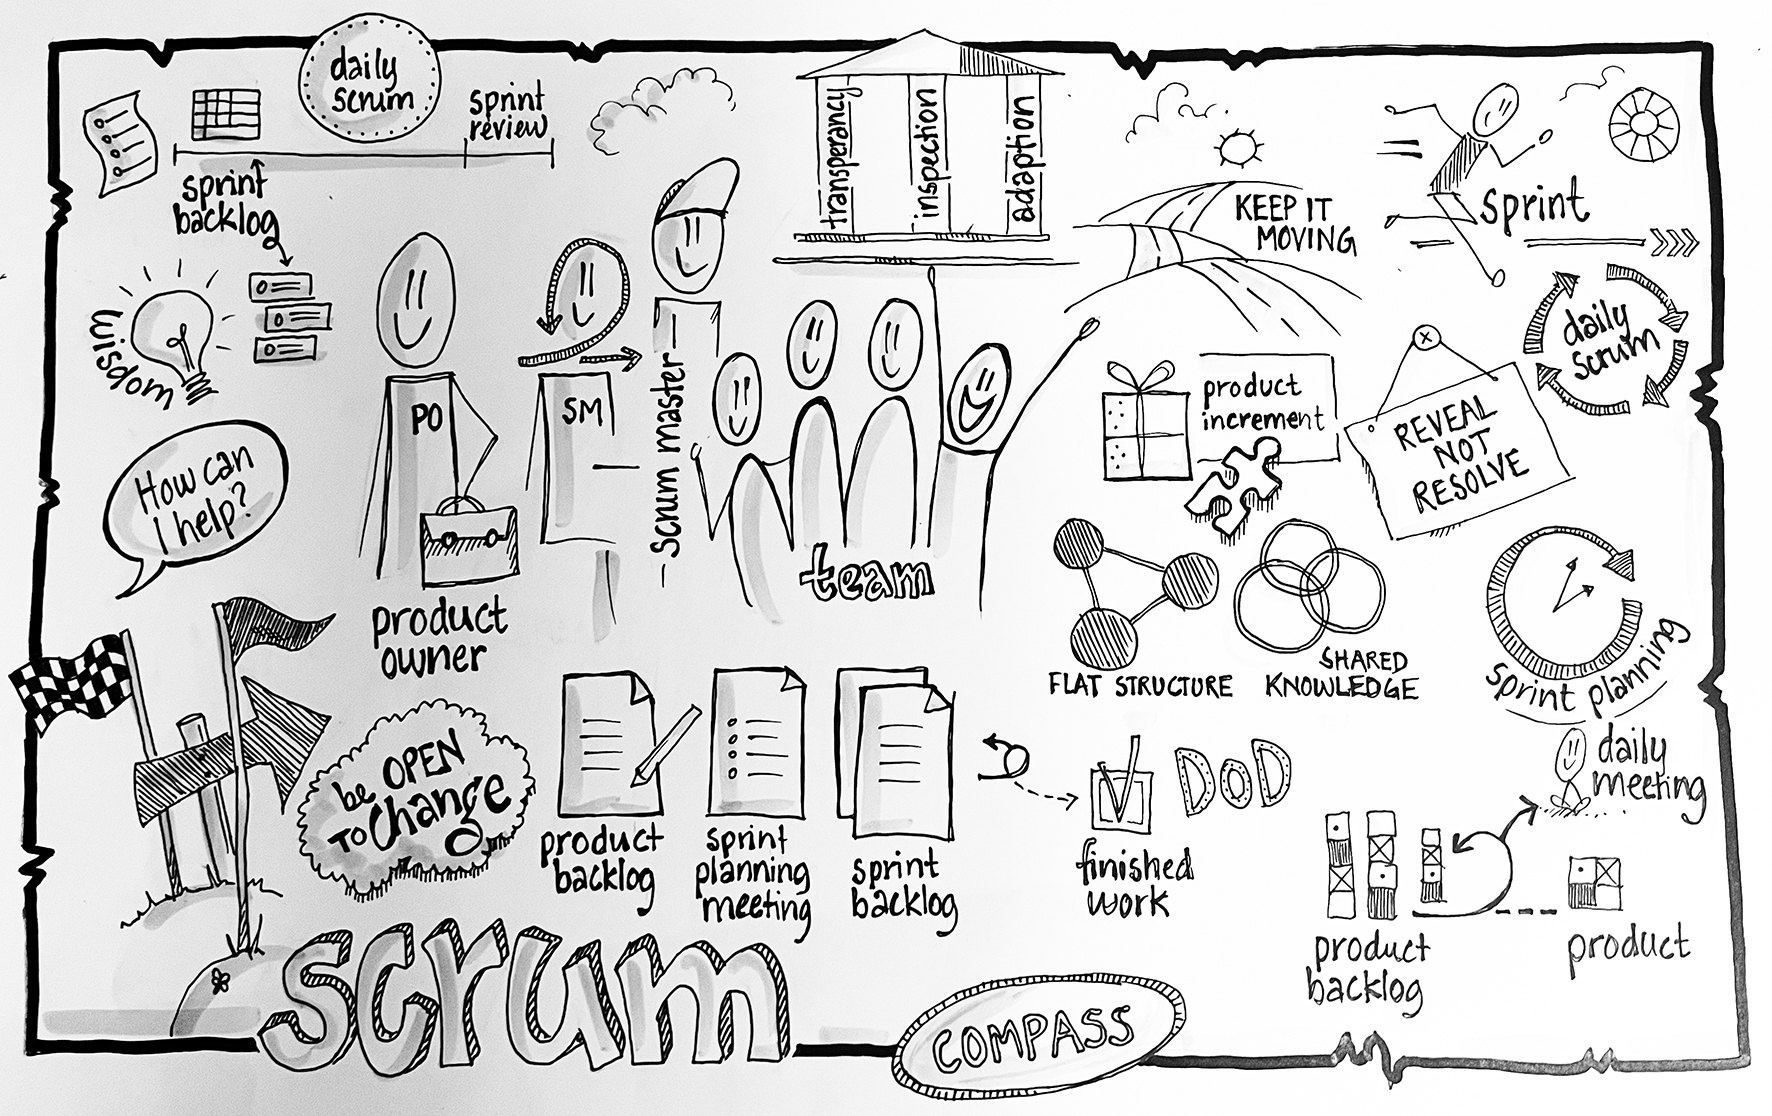 daily
scrum
sprint
review
sprint
backlog
transperancy
inspection
adaption
KEEP IT
MOVING
sprint
wisdom
PO
SM
scrum master
daily
scrum
product
increment
REVEAL
NOT
RESOLVE
How can
I help?
team
product
owner
FLAT STRUCTURE
SHARED
KNOWLEDGE
sprint planning
be OPEN
TO change
product
backlog
sprint
planning
meeting
sprint
backlog
finished
work
DoD
daily
meeting
product
backlog
product
scrum
COMPASS